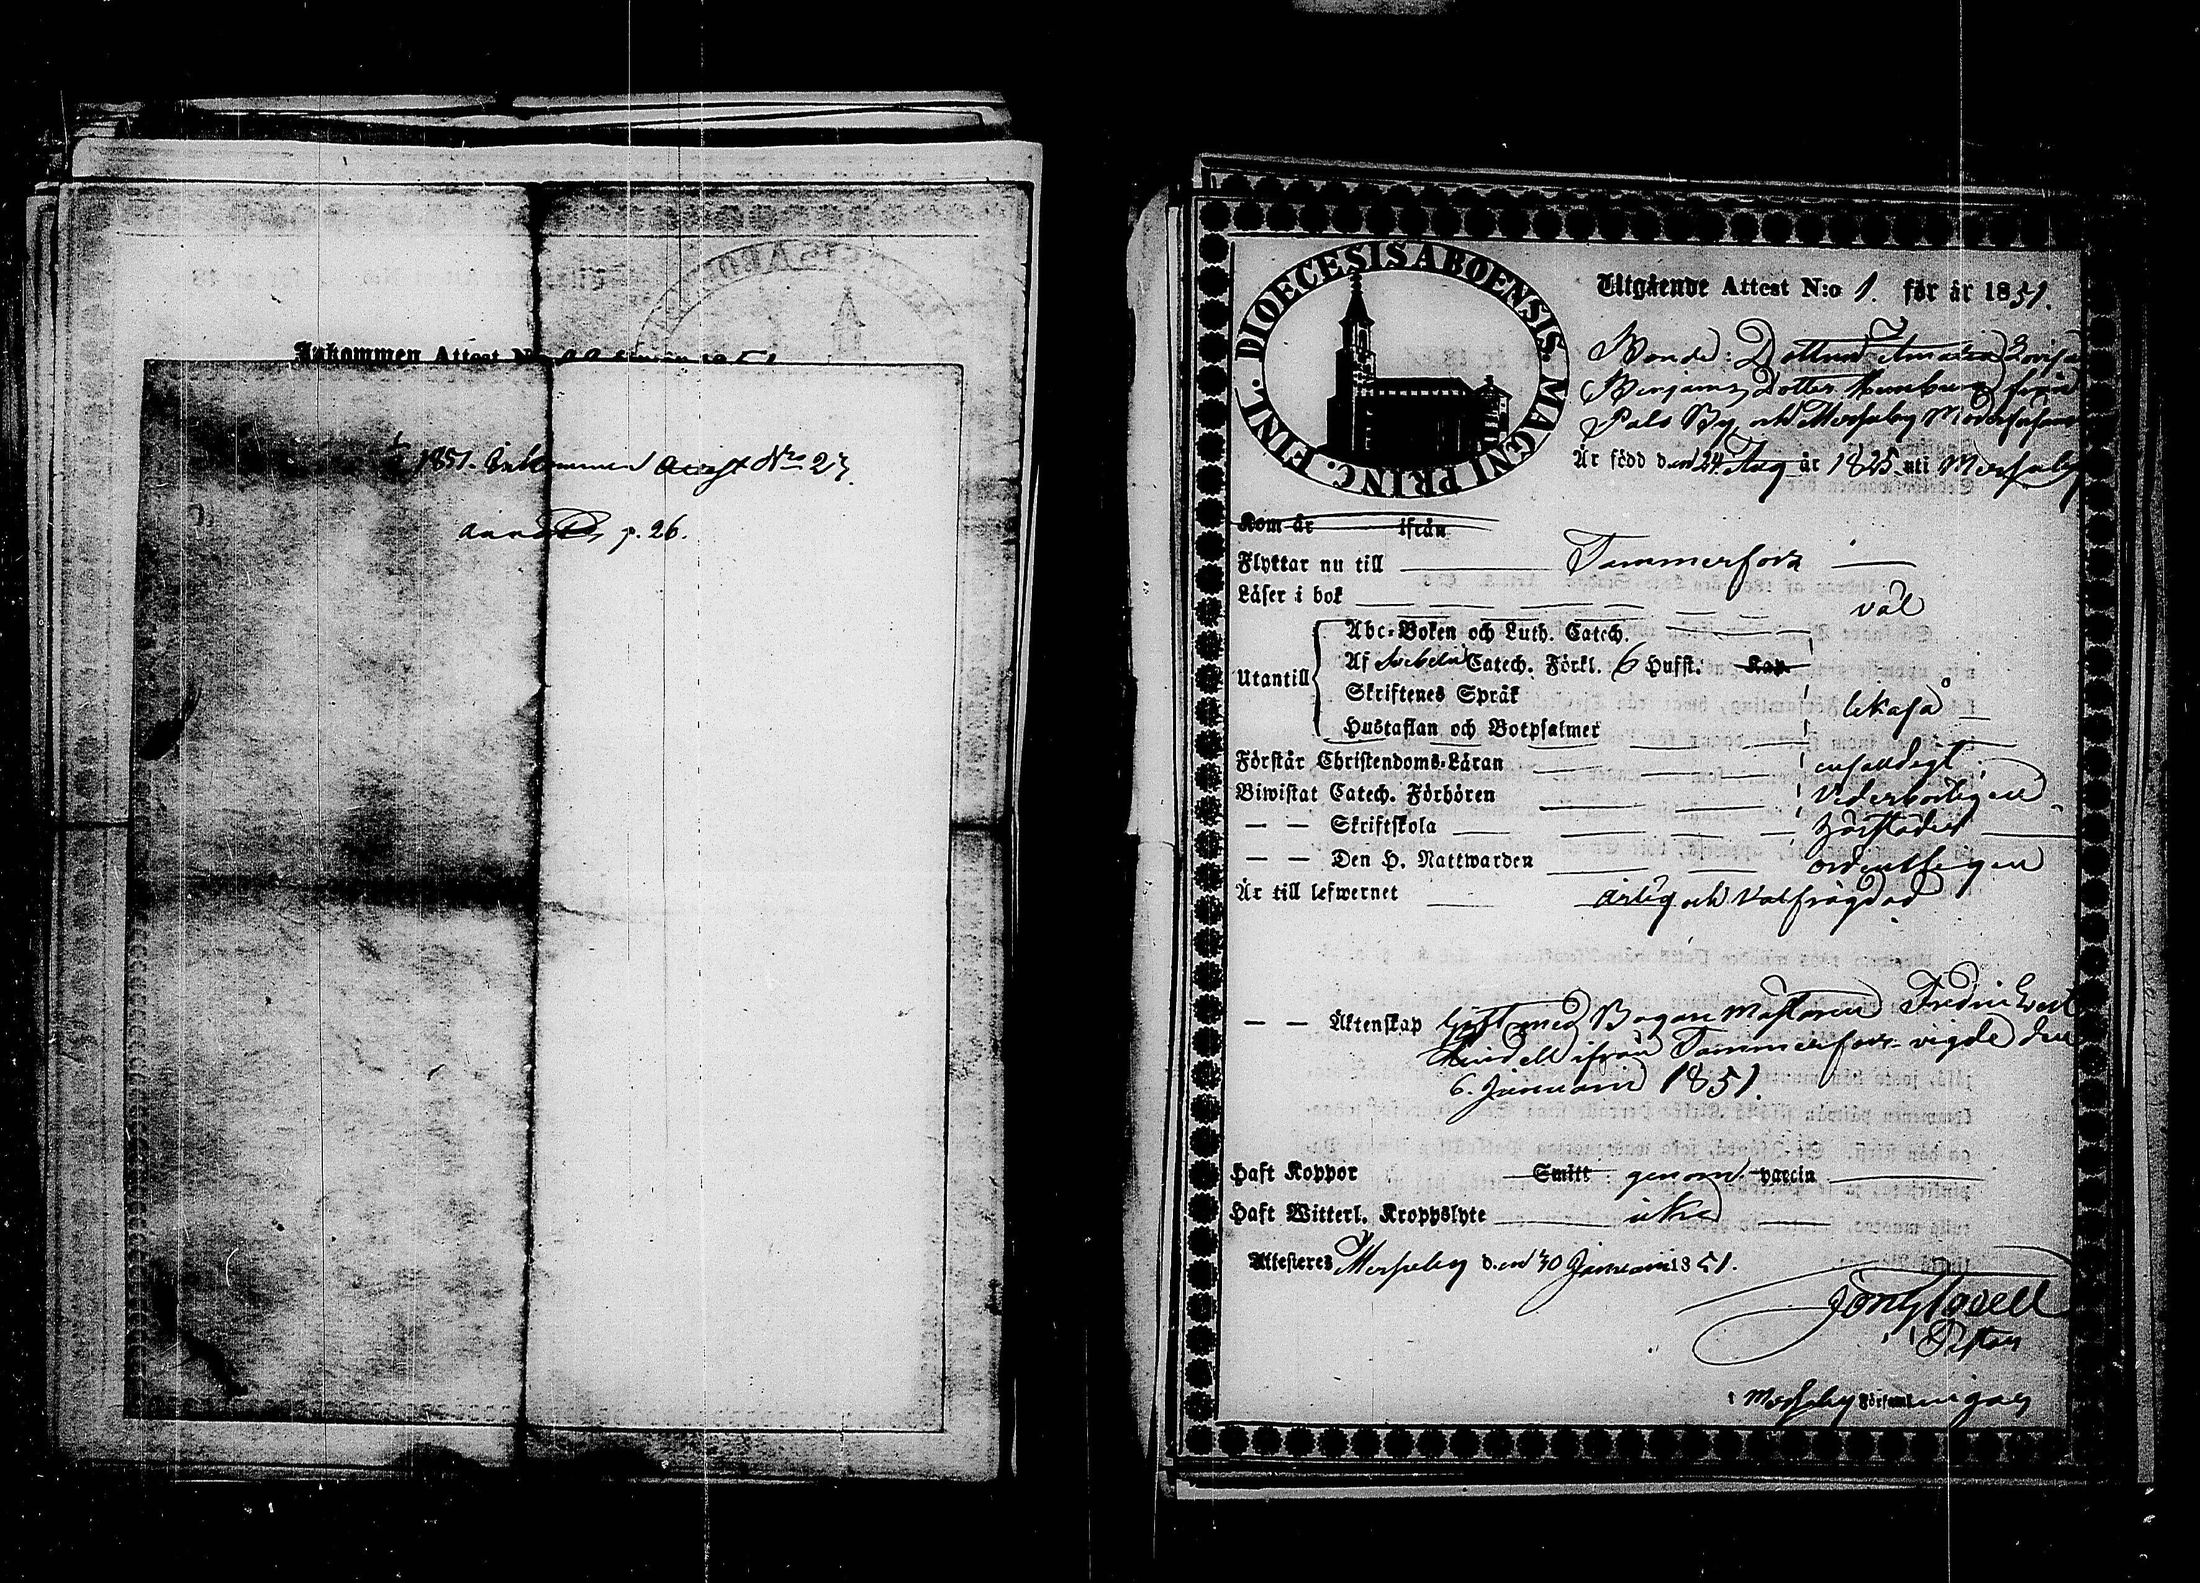 Inkommen Attest
1851. Inkommen Attest No 27
p. 26.
DIOECESIS ABOENSIS. MAGNI PRINC. FINL.
Utgående Attest N:o 1. för år 1851.
Bonde: Dottren Amalia Lovisa
Benjamins Dotter ifrån
Pals By och Merseby Moderförsam
Är född den 24 Aug år 1825 uti Merseby
Kom år ifrån
Flyttar nu till Tammerfors
Läser i bok väl
Utantill
Abc-Boken och Luth. Catech.
Af Svebelii Catech. Förkl. 6 Hufst. Kap.
Skriftenes Språk likaså
Hustaflan och Botpsalmer
Förstår Christendoms-Läran enfaldigt
Biwistat Catech. Förhören vederbörligen
— — Skriftskola
— — Den H. Nattwarden ordentligen
Är till lefwernet ärlig och välfrägdad
— — Äktenskap Gift med Bagare Mästaren Fredric
Lindell ifrån Tammerfors vigde den
6. Januarii 1851.
Haft Koppor Smitt genom vaccin
Haft Witterl. Kroppslyte icke
Attesteres Merseby den 30 Januarii 1851.
Pastor
i Merseby Församlingar